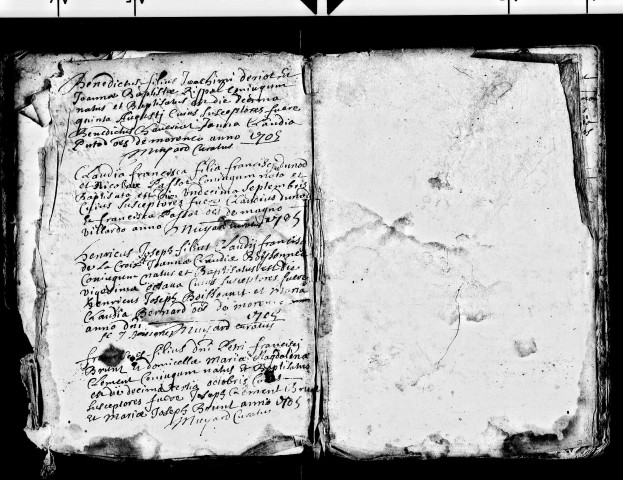 Benedictus filius Joachimi deriot et
Joannæ Baptistæ Rispal Coniugum
natus et Baptisatus est die decima
quinta Augusti Cuius susceptores fuere
Benedictus Joanna Claudia
oēs de morenco anno 1705
Muyard Curatus
Claudia francisca filia francisci dunod
et Nicolaæ passot Coniugum nata et
Baptisata est die undecima septembris
Cuius susceptores fuere Claudius dunod
et francisca passot oēs de magno
villardo anno 1705
Muyard Curatus
Henricus Joseph filius Claudij francisci
de la Croix Joannæ Claudiæ Boissonnet
Coniugum natus et Baptisatus est die
vigesima octava Cuius susceptores fuere
henricus Joseph Boissonnet et Maria
Claudia Bernard oēs de morence
anno dni 1705
Muyard Curatus
filius dni Petri francisci
Brunt et domicellæ Mariæ Magdalenæ
Clement Coniugum natus et Baptisatus
est die decima tertia octobris
susceptores fuere Joseph Clement Brunt
et Maria Joseph Brunt anno 1705
Muyard Curatus